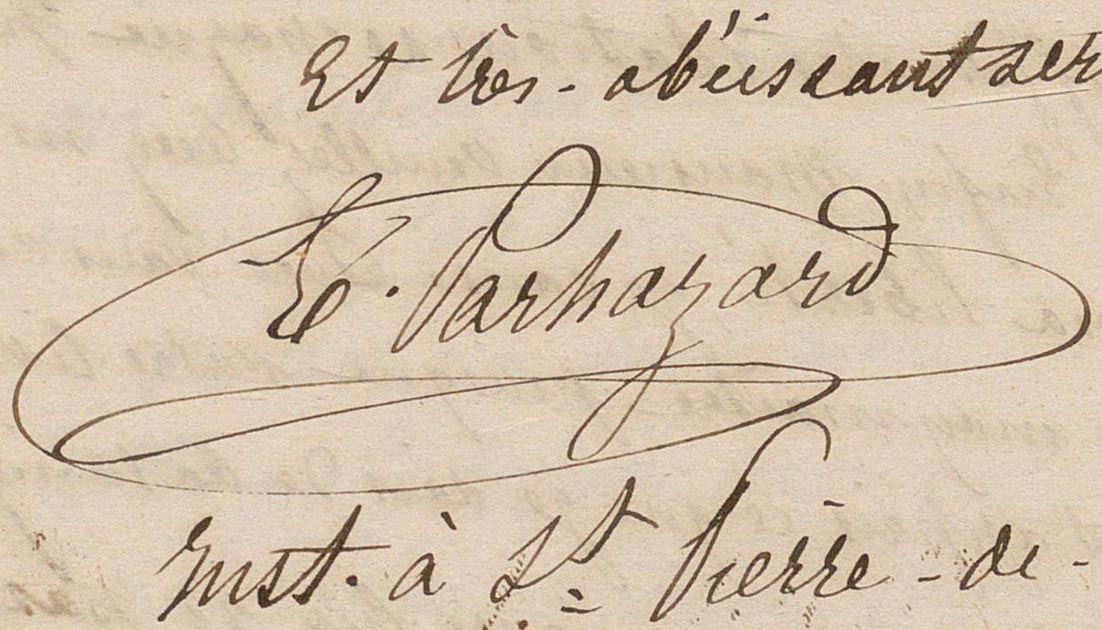 Et très-obéissant ser
E. Parhazard
Inst. à St. Pierre-de-